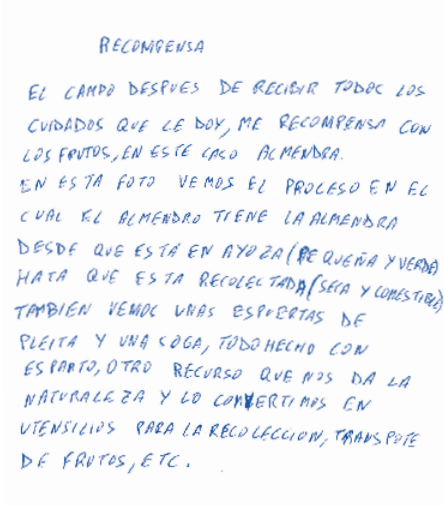 RECOMPENSA
EL CAMPO DESPUES DE RECIBIR TODOC LOS
CUIDADOS QUE LE DOY, ME RECOMPENSA CON
LOS FRUTOS, EN ESTE CASO ALMENDRA.
EN ESTA FOTO VEMOS EL PROCESO EN EL
CUAL EL ALMENDRO TIENE LA ALMENDRA
DESDE QUE ESTÁ EN AYOZA (PEQUEÑA Y VERDE)
HATA QUE ESTA RECOLECTADA (SECA Y COMESTIBLE)
TAMBIEN VEMOC UNAS ESPUERTAS DE
PLEITA Y UNA SOGA, TODO HECHO CON
ESPARTO, OTRO RECURSO QUE NOS DA LA
NATURALEZA Y LO CONVERTIMOS EN
UTENSILIOS PARA LA RECOLECCION, TRANSPOTE
DE FRUTOS, ETC.